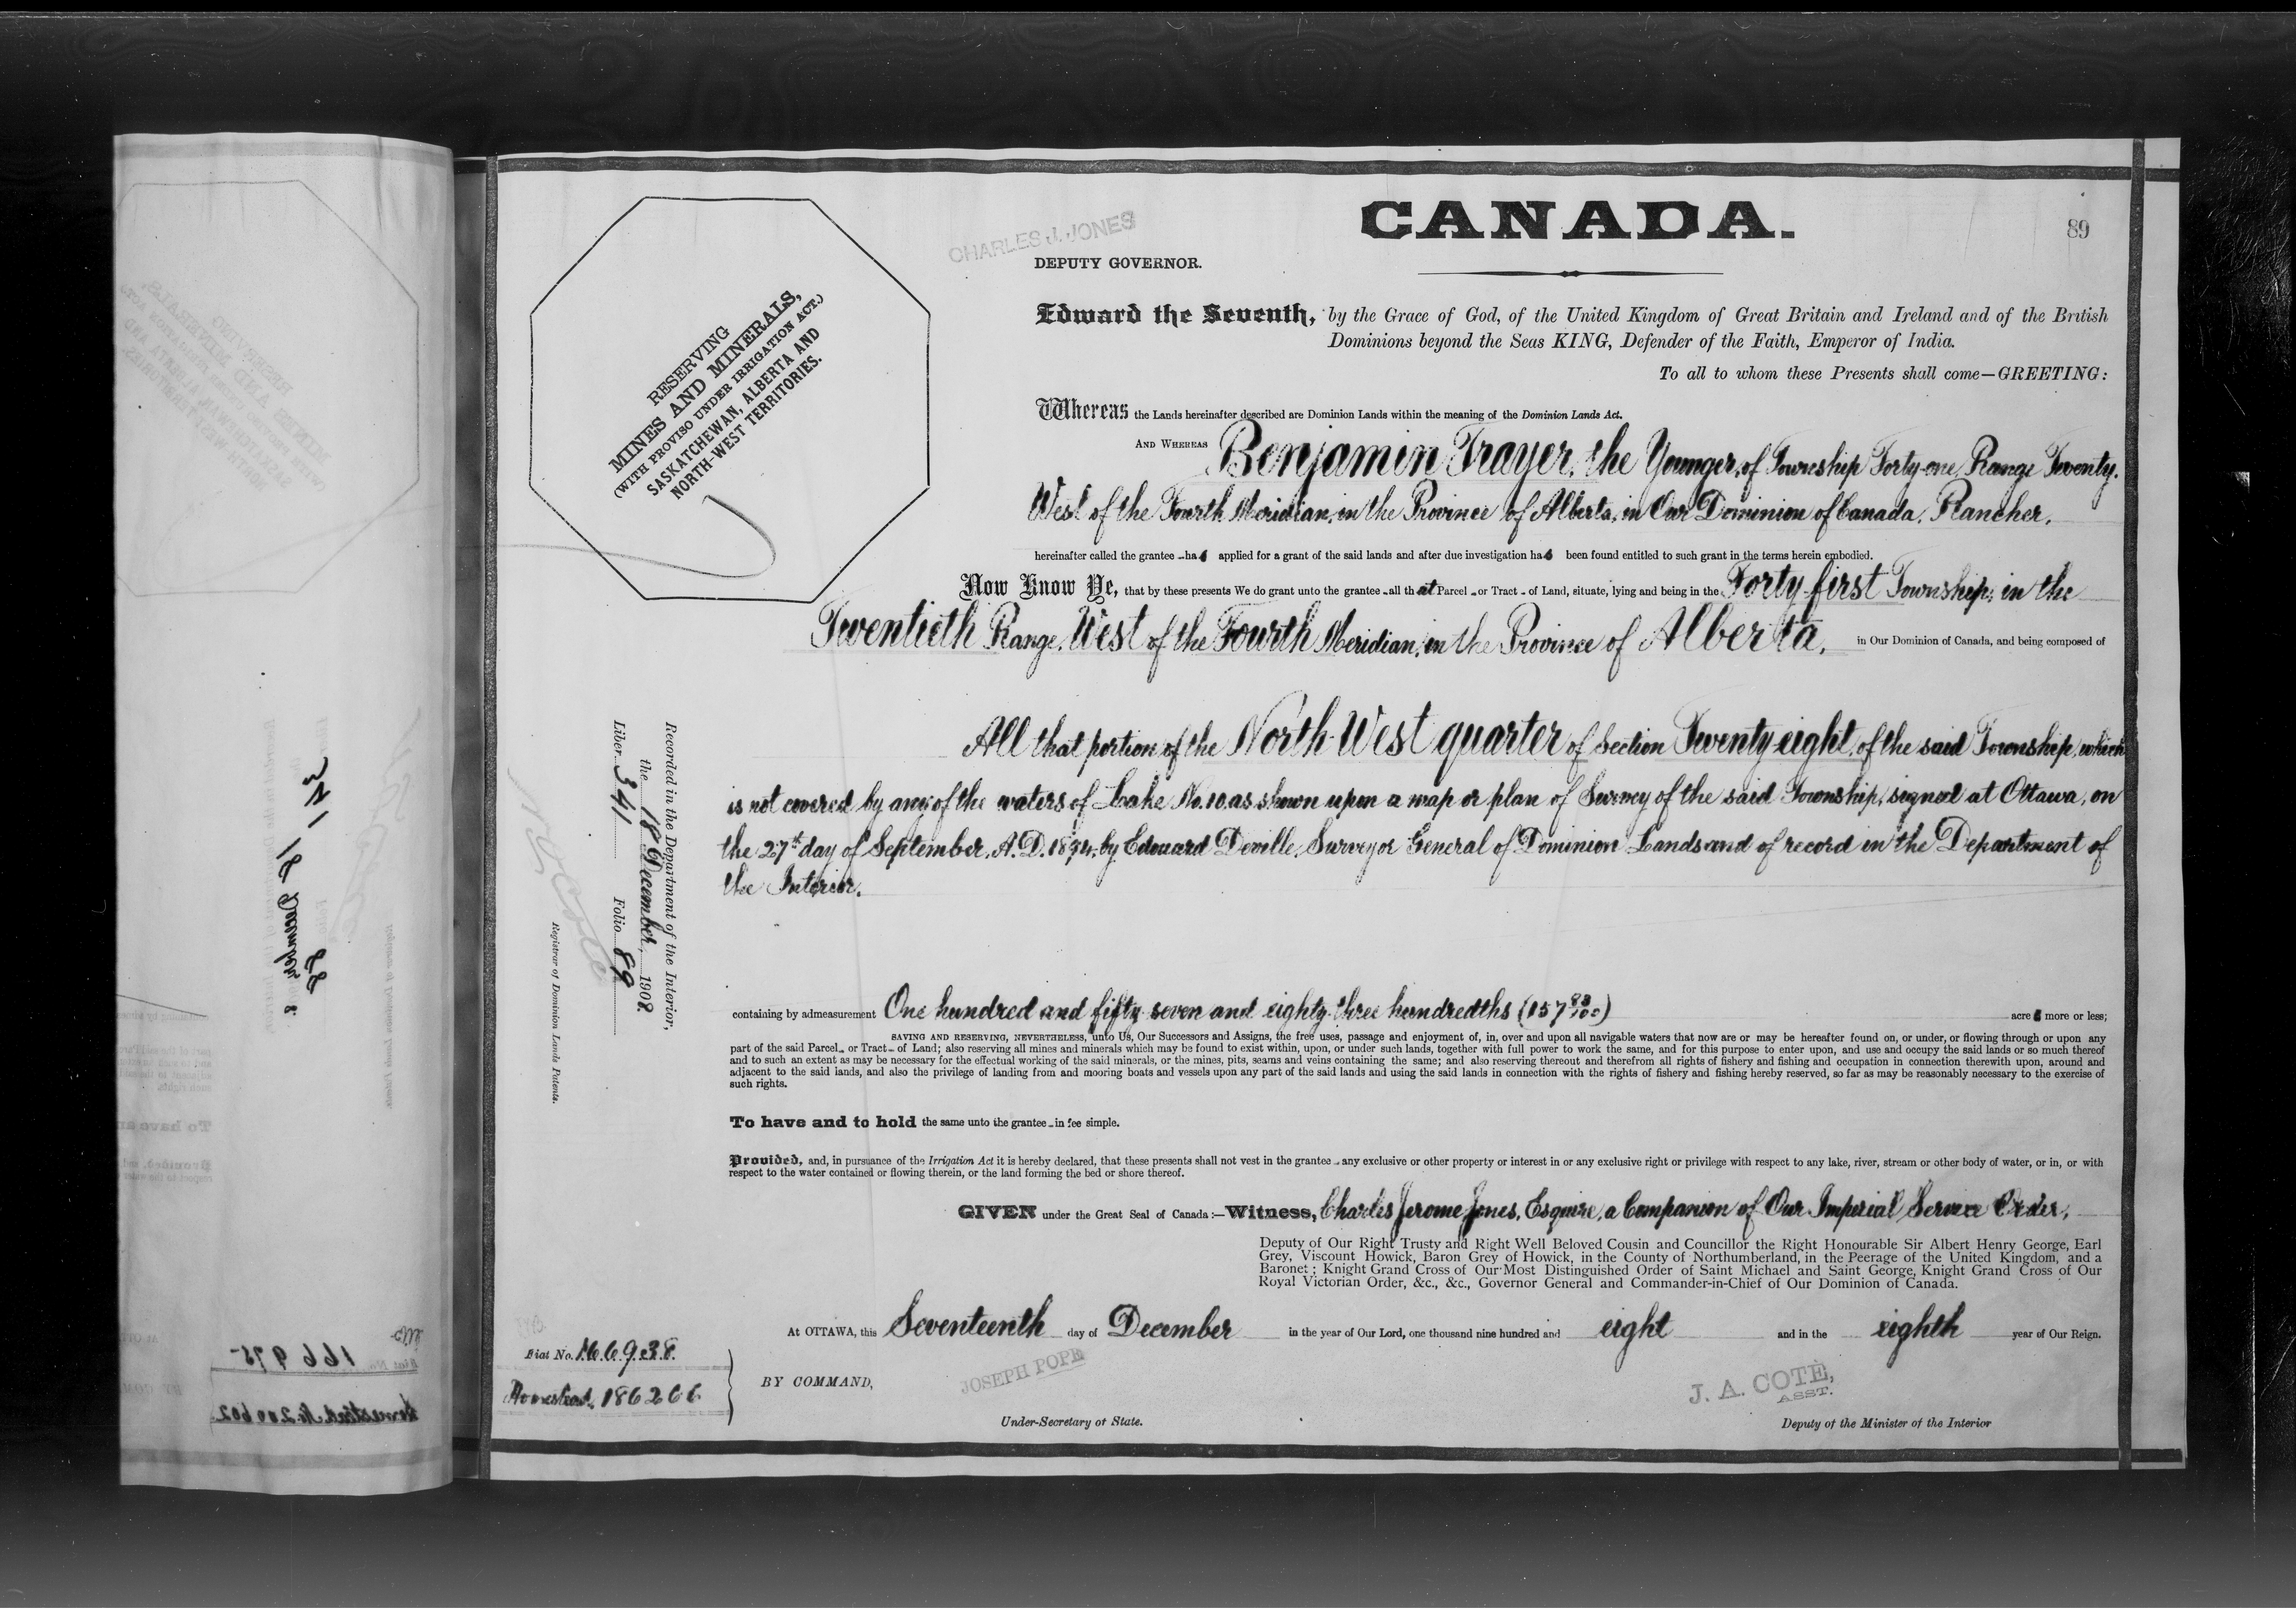 CANADA.
89
CHARLES J. JONES
DEPUTY GOVERNOR.
RESERVING
MINES AND MINERALS,
(WITH PROVISO UNDER IRRIGATION ACT.)
SASKATCHEWAN, ALBERTA AND
NORTH-WEST TERRITORIES.
Edward the Seventh, by the Grace of God, of the United Kingdom of Great Britain and Ireland and of the British
Dominions beyond the Seas KING, Defender of the Faith, Emperor of India.
To all to whom these Presents shall come—GREETING:
Whereas the Lands hereinafter described are Dominion Lands within the meaning of the Dominion Lands Act.
AND WHEREAS Benjamin Trayer, the Younger, of Township Forty-one Range Twenty.
West of the Fourth Meridian, in the Province of Alberta, in Our Dominion of Canada, Rancher,
hereinafter called the grantee has applied for a grant of the said lands and after due investigation has been found entitled to such grant in the terms herein embodied.
Now Know Ye, that by these presents We do grant unto the grantee all that Parcel or Tract of Land, situate, lying and being in the Forty-first Township, in the
Twentieth Range, West of the Fourth Meridian, in the Province of Alberta, in Our Dominion of Canada, and being composed of
All that portion of the North West quarter of Section Twenty eight, of the said Township, which
is not covered by any of the waters of Lake No. 10. as shown upon a map or plan of Survey of the said Township, signed at Ottawa, on
the 27th day of September, A.D. 1894, by Edouard Deville, Surveyor General of Dominion Lands and of record in the Department of
the Interior.
containing by admeasurement One hundred and fifty seven and eighty three hundredths (157 83/100) acres more or less;
SAVING AND RESERVING, NEVERTHELESS, unto Us, Our Successors and Assigns, the free uses, passage and enjoyment of, in, over and upon all navigable waters that now are or may be hereafter found on, or under, or flowing through or upon any
part of the said Parcel or Tract of Land; also reserving all mines and minerals which may be found to exist within, upon, or under such lands, together with full power to work the same, and for this purpose to enter upon, and use and occupy the said lands or so much thereof
and to such an extent as may be necessary for the effectual working of the said minerals, or the mines, pits, seams and veins containing the same; and also reserving thereout and therefrom all rights of fishery and fishing and occupation in connection therewith upon, around and
adjacent to the said lands, and also the privilege of landing from and mooring boats and vessels upon any part of the said lands and using the said lands in connection with the rights of fishery and fishing hereby reserved, so far as may be reasonably necessary to the exercise of
such rights.
To have and to hold the same unto the grantee in fee simple.
Provided, and, in pursuance of the Irrigation Act it is hereby declared, that these presents shall not vest in the grantee any exclusive or other property or interest in or any exclusive right or privilege with respect to any lake, river, stream or other body of water, or in, or with
respect to the water contained or flowing therein, or the land forming the bed or shore thereof.
GIVEN under the Great Seal of Canada:—Witness, Charles Jerome Jones, Esquire, a Companion of Our Imperial Service Order,
Deputy of Our Right Trusty and Right Well Beloved Cousin and Councillor the Right Honourable Sir Albert Henry George, Earl
Grey, Viscount Howick, Baron Grey of Howick, in the County of Northumberland, in the Peerage of the United Kingdom, and a
Baronet; Knight Grand Cross of Our Most Distinguished Order of Saint Michael and Saint George, Knight Grand Cross of Our
Royal Victorian Order, &c., &c., Governor General and Commander-in-Chief of Our Dominion of Canada.
At OTTAWA, this Seventeenth day of December in the year of Our Lord, one thousand nine hundred and eight and in the eighth year of Our Reign.
BY COMMAND,
JOSEPH POPE
Under-Secretary of State.
J. A. COTÉ,
ASST.
Deputy of the Minister of the Interior
Recorded in the Department of the Interior,
the 18 December, 1908.
Liber 341 Folio 89
Registrar of Dominion Lands Patents.
Fiat No. 166938.
Homestead, 186266